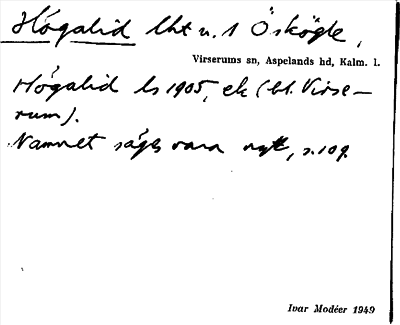 Högalid lht u. 1 Öskögle,
Virserums sn, Aspelands hd, Kalm. l.
Högalid ls 1905, ek (bl. Virse-
rum).
Namnet säges vara nytt, s. 109.
Ivar Modéer 1949